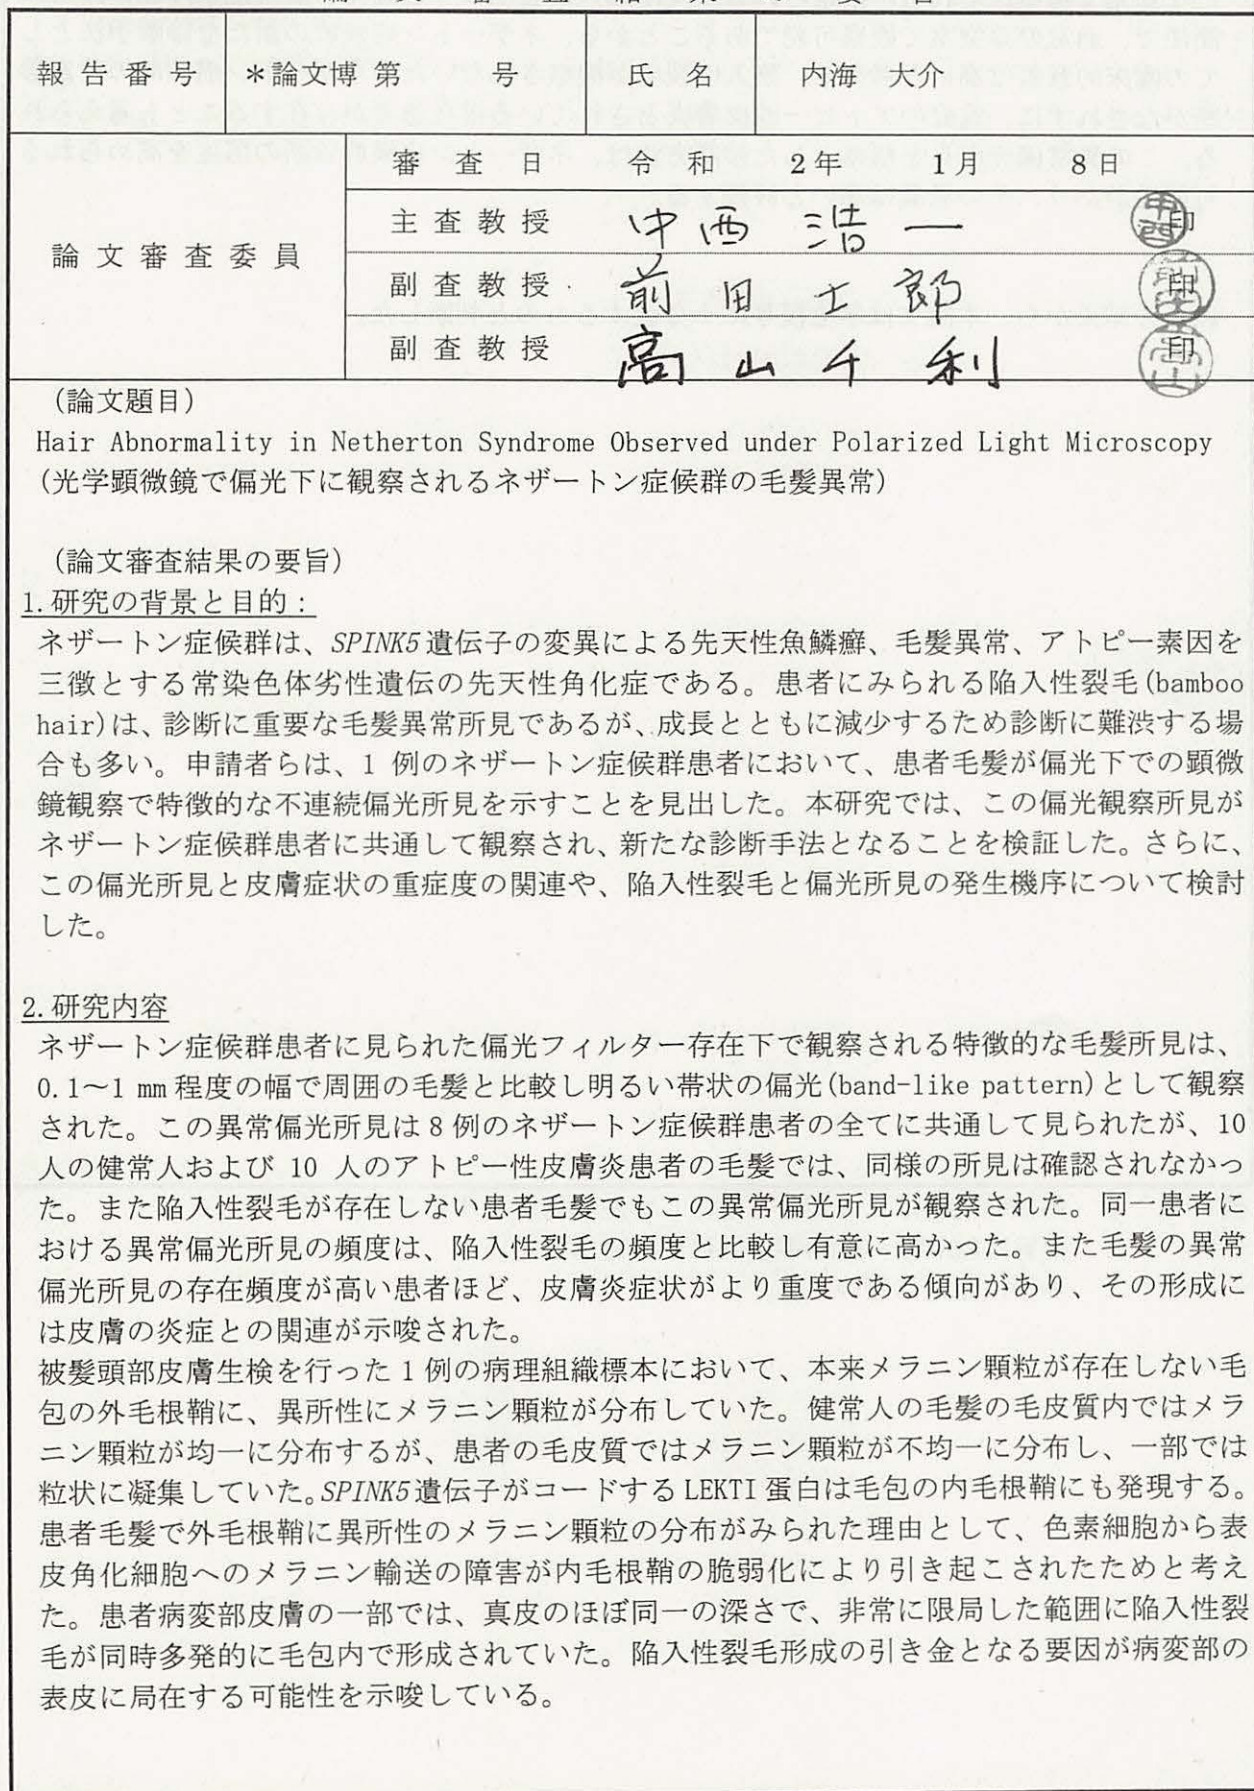 報告番号 *論文博第 号 氏名 内海 大介
論文審査委員
審査日 令和 2年 1月 8日
主査教授 中西 浩一 印
副査教授 前田 士郎 印
副査教授 高山千利 印
(論文題目)
Hair Abnormality in Netherton Syndrome Observed under Polarized Light Microscopy
(光学顕微鏡で偏光下に観察されるネザートン症候群の毛髪異常)
(論文審査結果の要旨)
1.研究の背景と目的:
ネザートン症候群は、SPINK5遺伝子の変異による先天性魚鱗癬、毛髪異常、アトピー素因を
三徴とする常染色体劣性遺伝の先天性角化症である。患者にみられる陥入性裂毛(bamboo
hair)は、診断に重要な毛髪異常所見であるが、成長とともに減少するため診断に難渋する場
合も多い。申請者らは、1 例のネザートン症候群患者において、患者毛髪が偏光下での顕微
鏡観察で特徴的な不連続偏光所見を示すことを見出した。本研究では、この偏光観察所見が
ネザートン症候群患者に共通して観察され、新たな診断手法となることを検証した。さらに、
この偏光所見と皮膚症状の重症度の関連や、陥入性裂毛と偏光所見の発生機序について検討
した。
2.研究内容
ネザートン症候群患者に見られた偏光フィルター存在下で観察される特徴的な毛髪所見は、
0.1～1 mm 程度の幅で周囲の毛髪と比較し明るい帯状の偏光(band-like pattern)として観察
された。この異常偏光所見は 8 例のネザートン症候群患者の全てに共通して見られたが、10
人の健常人および 10 人のアトピー性皮膚炎患者の毛髪では、同様の所見は確認されなかっ
た。また陥入性裂毛が存在しない患者毛髪でもこの異常偏光所見が観察された。同一患者に
おける異常偏光所見の頻度は、陥入性裂毛の頻度と比較し有意に高かった。また毛髪の異常
偏光所見の存在頻度が高い患者ほど、皮膚炎症状がより重度である傾向があり、その形成に
は皮膚の炎症との関連が示唆された。
被髪頭部皮膚生検を行った 1 例の病理組織標本において、本来メラニン顆粒が存在しない毛
包の外毛根鞘に、異所性にメラニン顆粒が分布していた。健常人の毛髪の毛皮質内ではメラ
ニン顆粒が均一に分布するが、患者の毛皮質ではメラニン顆粒が不均一に分布し、一部では
粒状に凝集していた。SPINK5遺伝子がコードする LEKTI 蛋白は毛包の内毛根鞘にも発現する。
患者毛髪で外毛根鞘に異所性のメラニン顆粒の分布がみられた理由として、色素細胞から表
皮角化細胞へのメラニン輸送の障害が内毛根鞘の脆弱化により引き起こされたためと考え
た。患者病変部皮膚の一部では、真皮のほぼ同一の深さで、非常に限局した範囲に陥入性裂
毛が同時多発的に毛包内で形成されていた。陥入性裂毛形成の引き金となる要因が病変部の
表皮に局在する可能性を示唆している。